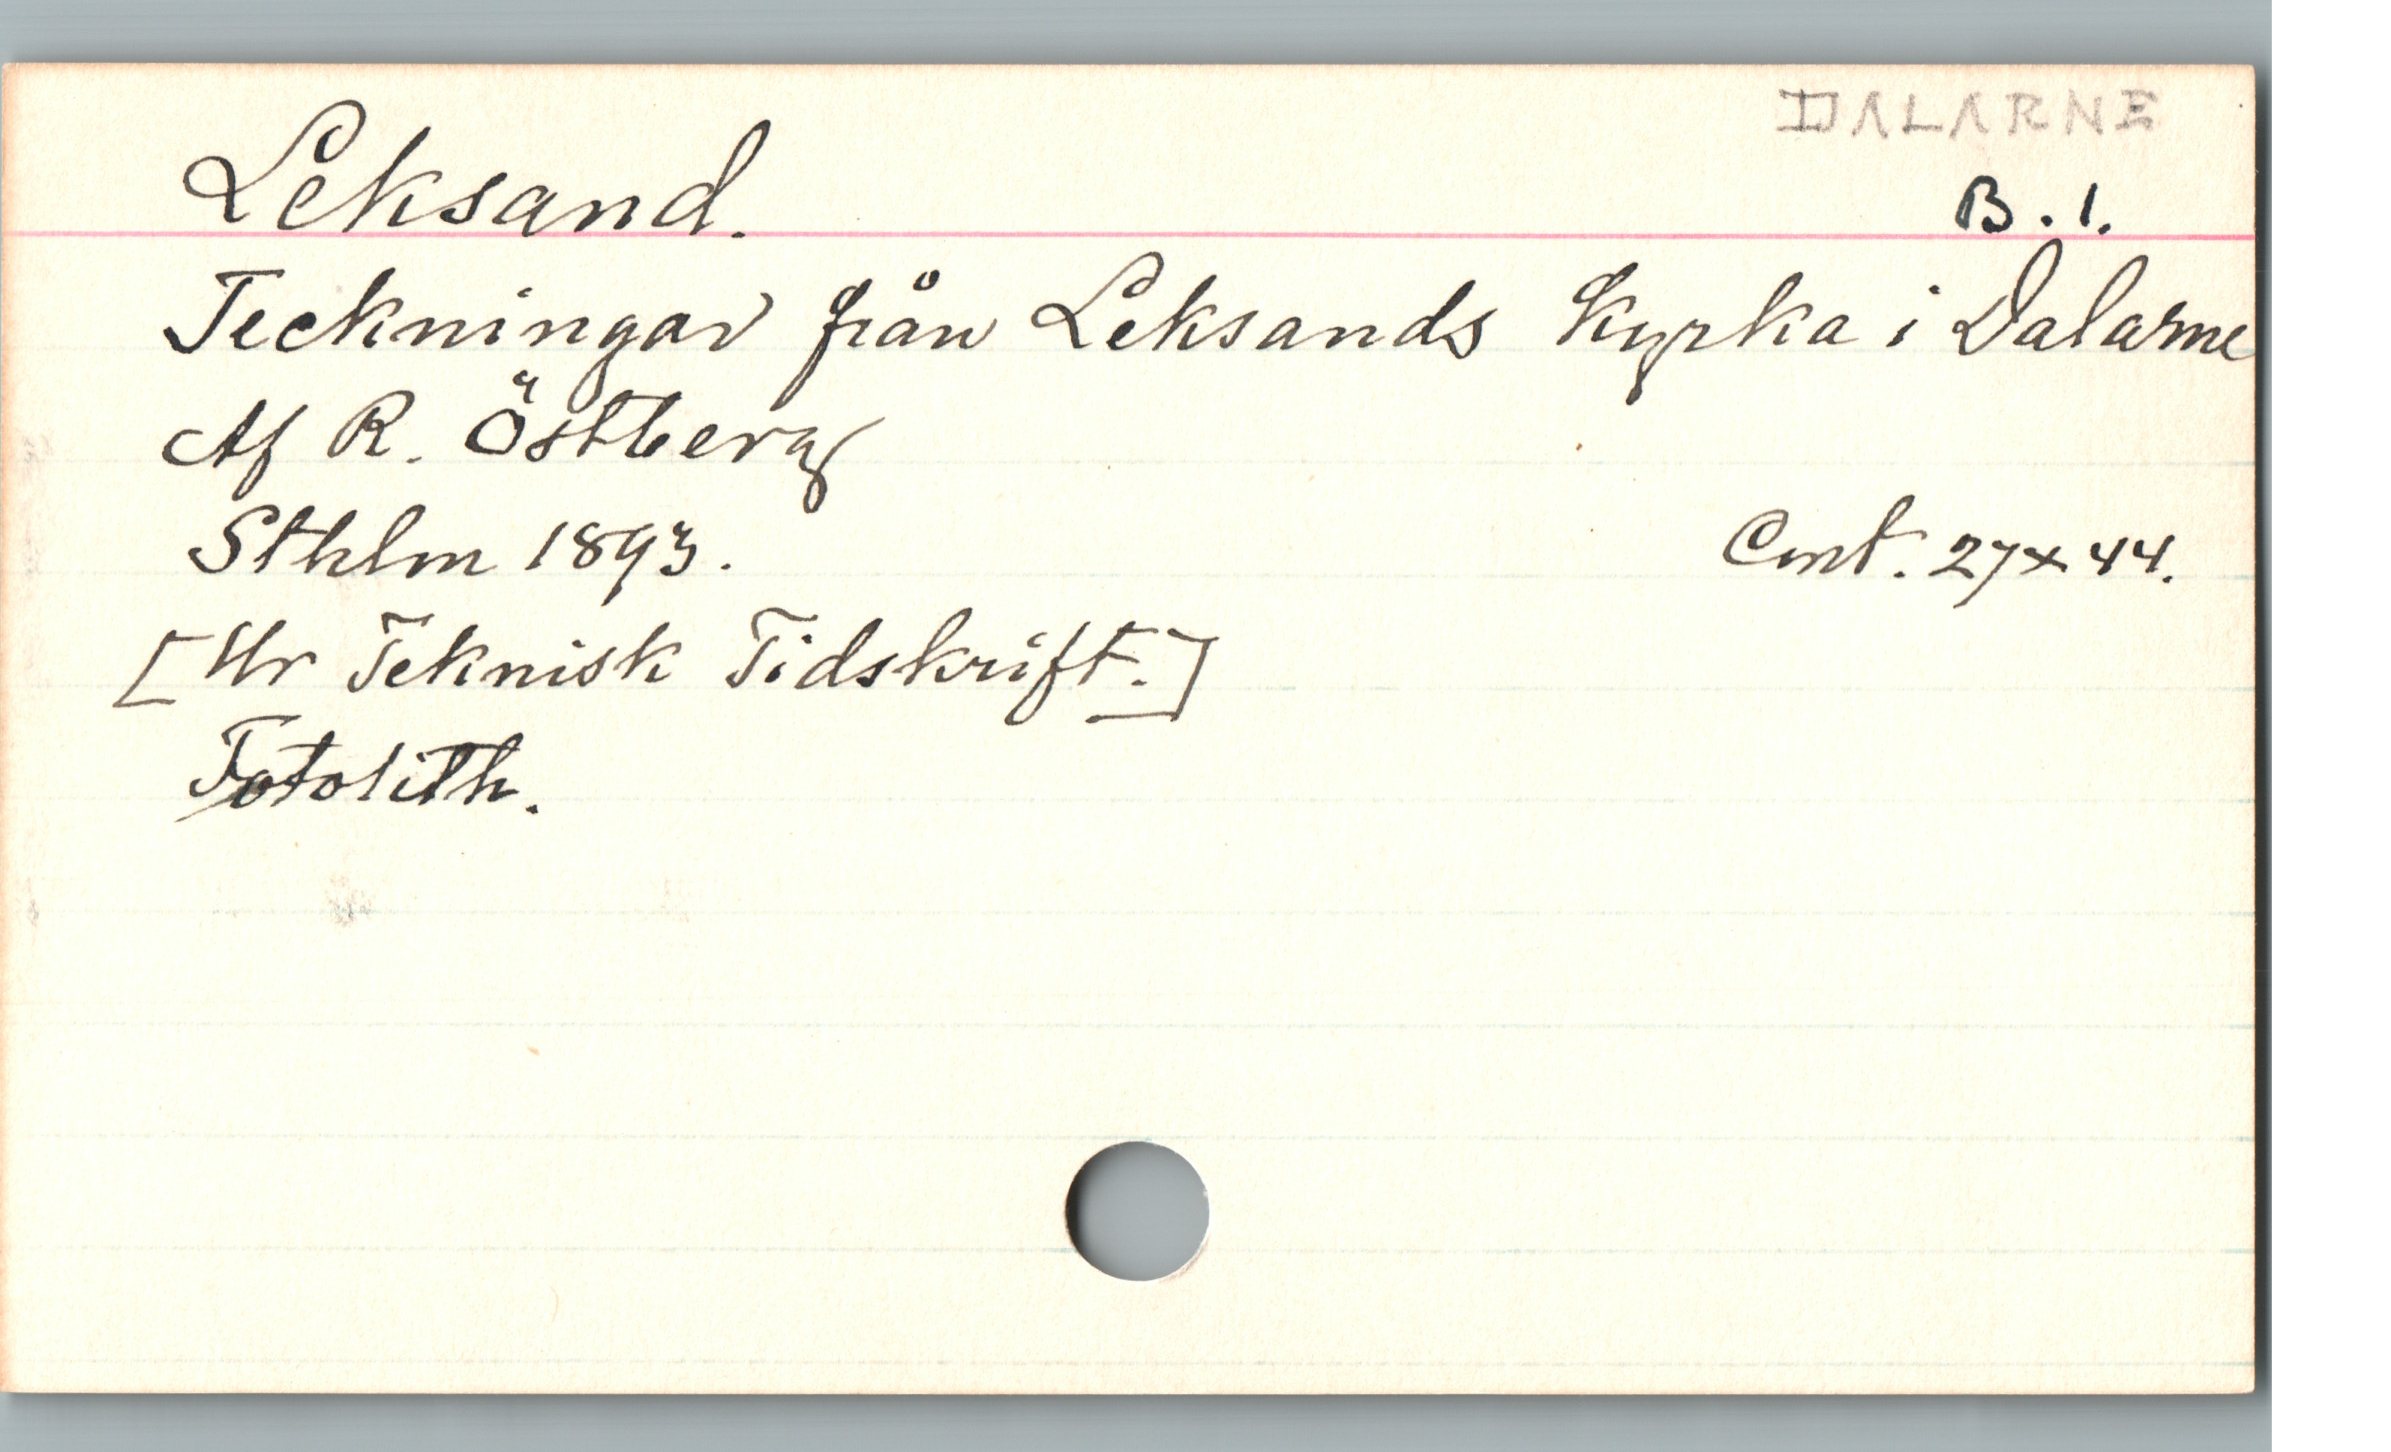 DALARNE
Leksand.
B. 1.
Teckningar från Leksands Kyrka i Dalarne
Af R. Östberg
Sthlm 1893.
Cmt. 27x44.
[Ur Teknisk Tidskrift.]
Fotolith.